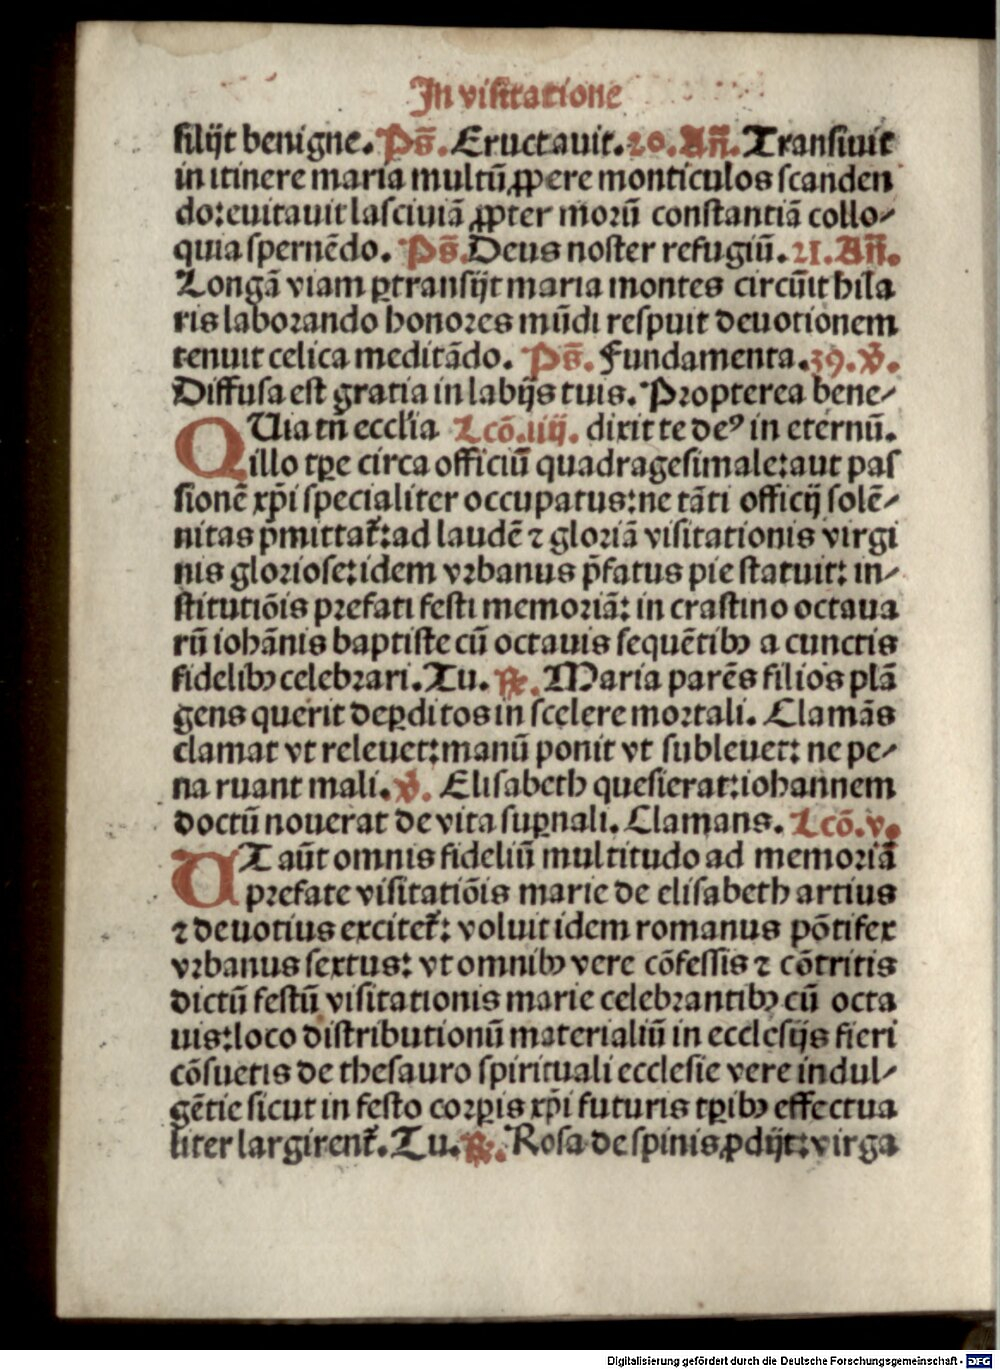 In visitatione
silijt benigne. Ps̄. Eructauit. 20. Añ. Transiuit
in itinere maria multū ꝓpere monticulos scanden
do: euitauit lasciuiā ꝓpter morū constantiā collo⸗
quia spernēdo. Ps̄. Deus noster refugiū. 21. Añ.
Longā viam ꝑtransijt maria montes circūit hila
ris laborando honores mūdi respuit deuotionem
tenuit celica meditādo. Ps̄. Fundamenta. 39. ꝟ.
Diffusa est gratia in labijs tuis. Propterea bene⸗
QUia tñ eccl'ia Lcō. iiij. dixit te deꝰ in eternū.
illo tꝑe circa officiū quadragesimale: aut pas
sionē xp̄i specialiter occupatus: ne tāti officij solē⸗
nitas p̄mittat᷑: ad laudē ⁊ gloriā visitationis virgi
nis gloriose: idem vrbanus p̄fatus pie statuit: in⸗
stitutiōis prefati festi memoriā: in crastino octaua
rū iohānis baptiste cū octauis sequētibꝫ a cunctis
fidelibꝫ celebrari. Tu. ℞. Maria parēs filios plā
gens querit deꝑditos in scelere mortali. Clamās
clamat vt releuet: manū ponit vt subleuet: ne pe⸗
na ruant mali. ꝟ. Elisabeth quesierat: iohannem
doctū nouerat de vita suꝑnali. Clamans. Lcō. v.
UT aūt omnis fideliū multitudo ad memoriā
prefate visitatiōis marie de elisabeth artius
⁊ deuotius excitet᷑: voluit idem romanus pōtifex
vrbanus sextus: vt omnibꝫ vere cōfessis ⁊ cōtritis
dictū festū visitationis marie celebrantibꝫ cū octa
uis: loco distributionū materialiū in ecclesijs fieri
cōsuetis de thesauro spirituali ecclesie vere indul⸗
gētie sicut in festo corꝑis xp̄i futuris tꝑibꝫ effectua
liter largirent᷑. Tu. ℞. Rosa de spinis ꝓdijt: virga
Digitalisierung gefördert durch die Deutsche Forschungsgemeinschaft - DFG